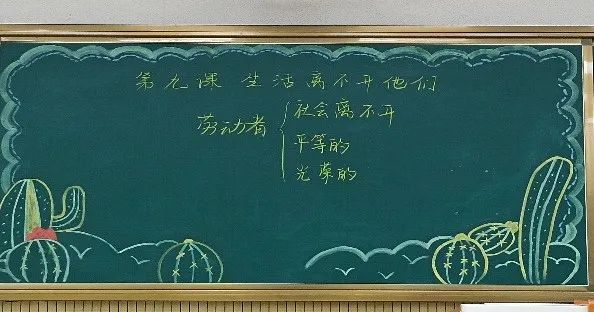 第九课 生活离不开他们
劳动者
社会离不开
平等的
光荣的